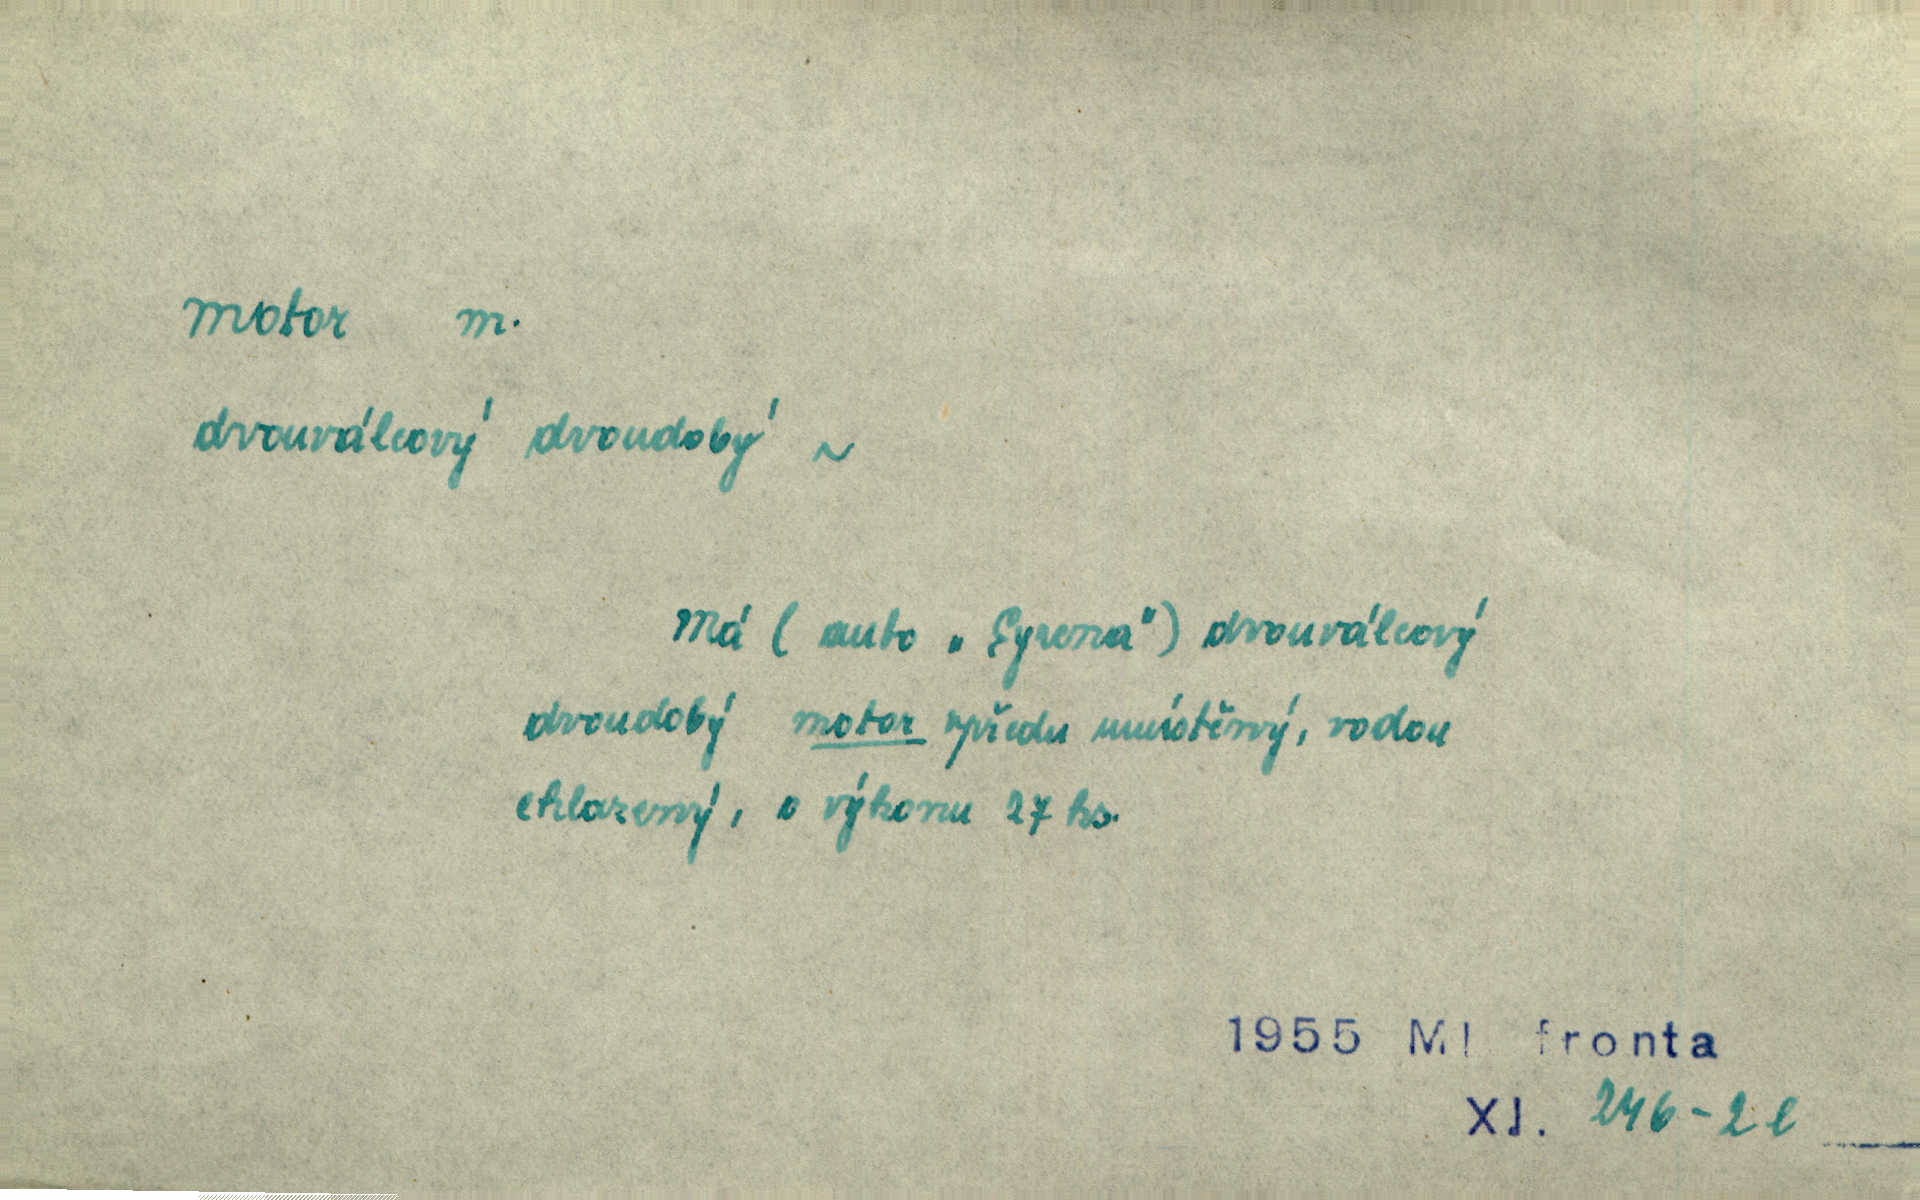 motor m.
dvouválcový dvoudobý ~
Má ( auto „Syrena“) dvouválcový
dvoudobý motor vpředu umístěný, vodou
chlazený, o výkonu 27 ks.
1955 Ml. fronta
XI. 246-2 l